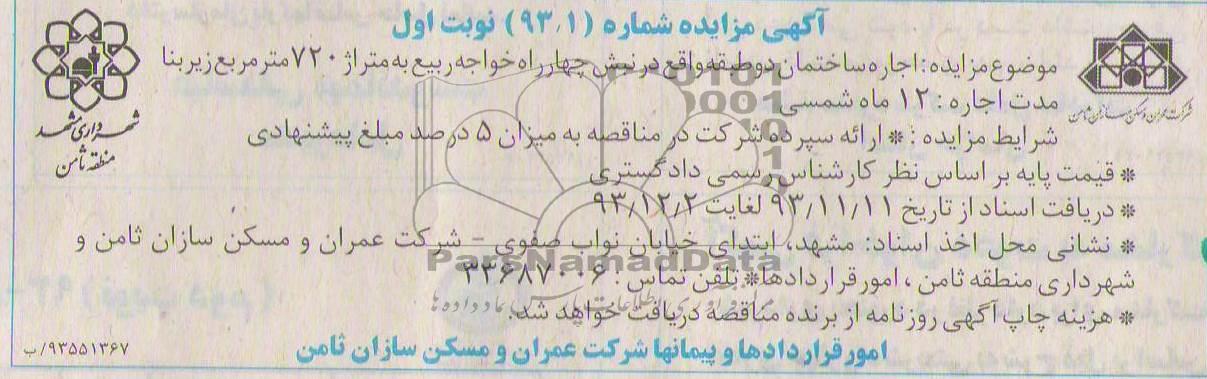 آگهی مزایده شماره (۹۳٫۱) نوبت اول
موضوع مزایده: اجاره ساختمان دو طبقه واقع در نبش چهارراه خواجه ربیع به متراژ ۷۲۰ مترمربع زیربنا
مدت اجاره: ۱۲ ماه شمسی
شرایط مزایده: * ارائه سپرده شرکت در مناقصه به میزان ۵ درصد مبلغ پیشنهادی
* قیمت پایه بر اساس نظر کارشناس رسمی دادگستری
* دریافت اسناد از تاریخ ۹۳/۱۱/۱۱ لغایت ۹۳/۱۲/۲
* نشانی محل اخذ اسناد: مشهد، ابتدای خیابان نواب صفوی - شرکت عمران و مسکن سازان ثامن و
شهرداری منطقه ثامن، امور قراردادها* تلفن تماس: ۳۳۶۸۷۰۰۶
* هزینه چاپ آگهی روزنامه از برنده مناقصه دریافت خواهد شد.
امور قراردادها و پیمانها شرکت عمران و مسکن سازان ثامن
۹۳۵۵۱۳۶۷/ب
شرکت عمران و مسکن سازان ثامن
شهرداری مشهد
منطقه ثامن
ParsNamadData